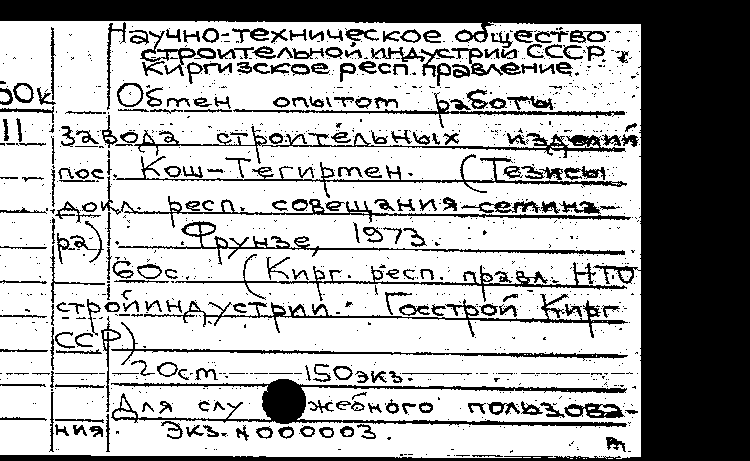 Научно-техническое общество
строительной индустрии СССР
Киргизское респ. правление.
60к Обмен опытом работы
11 завода строительных изделий
пос. Кош-Тегирмен. (Тезисы
докл. респ. совещания-семина-
ра). Фрунзе, 1973.
60с. (Кирг. респ. правл. НТО
стройиндустрии. Госстрой Кирг
ССР).
20см. 150экз.
Для служебного пользова-
ния. Экз. N000003.